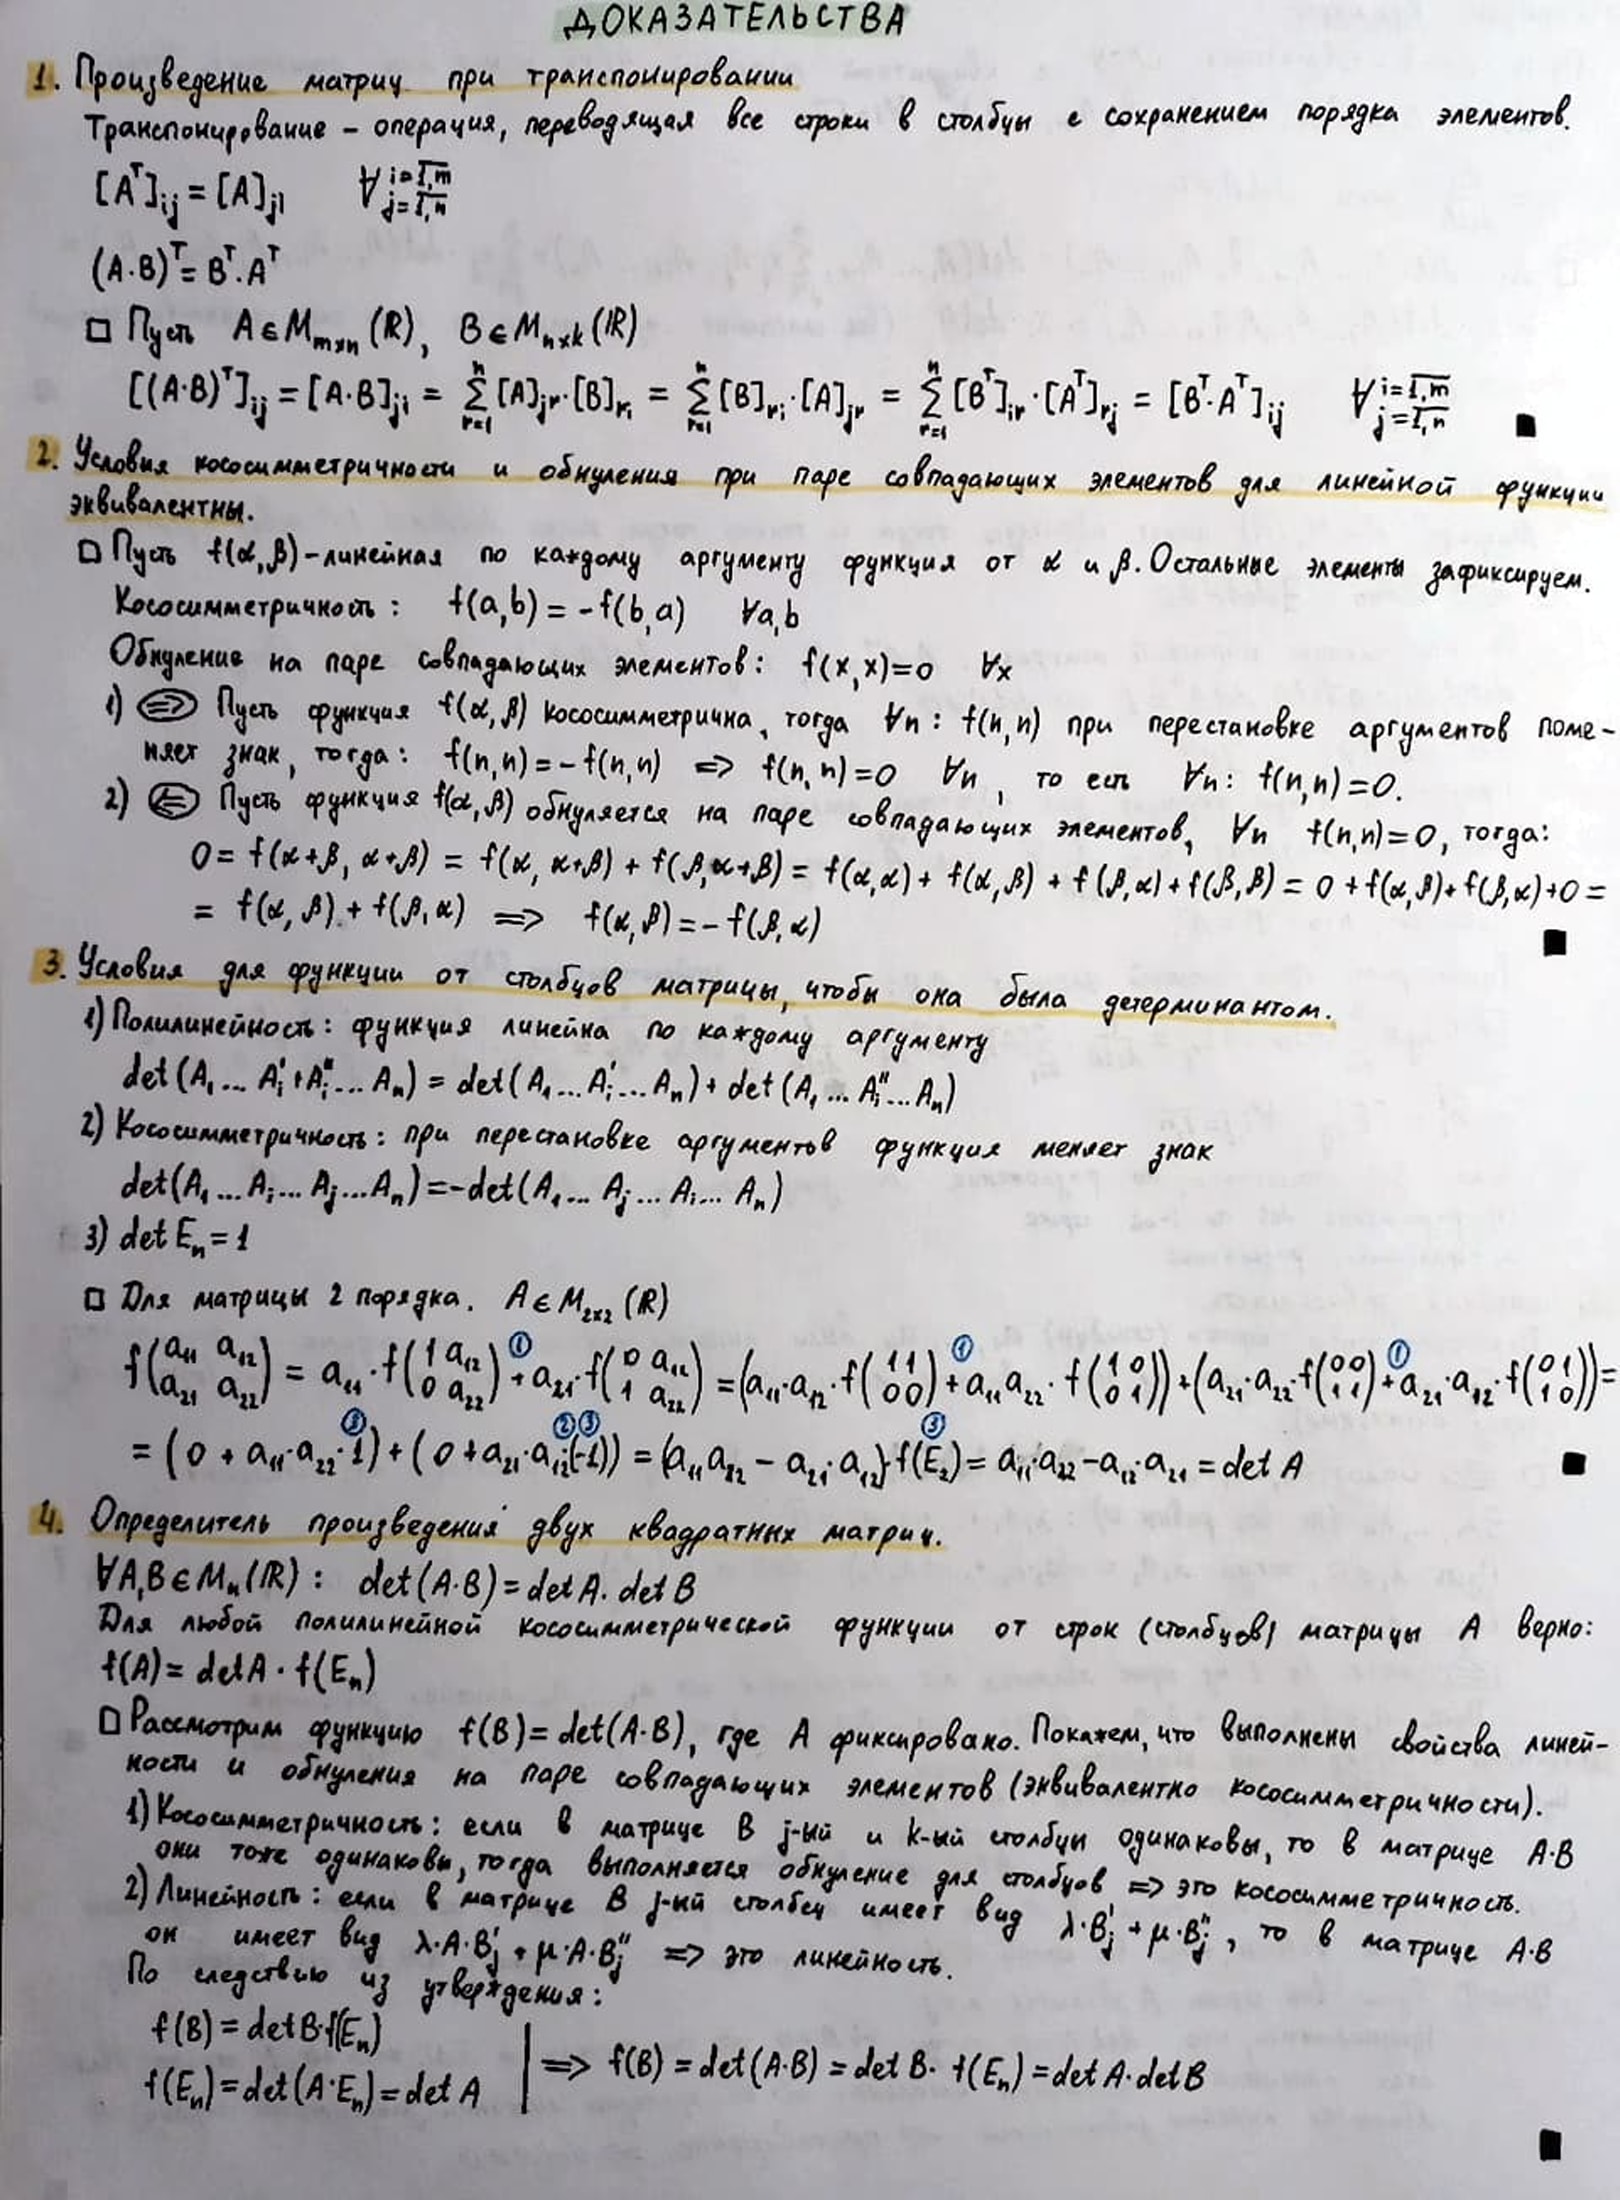 ДОКАЗАТЕЛЬСТВА
1. Произведение матриц при транспонировании
Транспонирование – операция, переводящая все строки в столбцы с сохранением порядка элементов.
[Aᵀ]ij = [A]ji ∀ i=1,m j=1,n
(A·B)ᵀ = Bᵀ·Aᵀ
□ Пусть A∈Mm×n(ℝ), B∈Mn×k(ℝ)
[(A·B)ᵀ]ij = [A·B]ji = Σⁿr=1 [A]jr·[B]ri = Σⁿr=1 [B]ri·[A]jr = Σⁿr=1 [Bᵀ]ir·[Aᵀ]rj = [Bᵀ·Aᵀ]ij ∀ i=1,m j=1,n ■
2. Условия кососимметричности и обнуления при паре совпадающих элементов для линейной функции
эквивалентны.
□ Пусть f(α,β) – линейная по каждому аргументу функция от α и β. Остальные элементы зафиксируем.
Кососимметричность: f(a,b) = -f(b,a) ∀a,b
Обнуление на паре совпадающих элементов: f(x,x)=0 ∀x
1) (⇒) Пусть функция f(α,β) кососимметрична, тогда ∀n: f(n,n) при перестановке аргументов поме-
няет знак, тогда: f(n,n) = -f(n,n) ⇒ f(n,n)=0 ∀n, то есть ∀n: f(n,n)=0.
2) (⇐) Пусть функция f(α,β) обнуляется на паре совпадающих элементов, ∀n f(n,n)=0, тогда:
0 = f(α+β, α+β) = f(α, α+β) + f(β, α+β) = f(α,α) + f(α,β) + f(β,α) + f(β,β) = 0 + f(α,β) + f(β,α) + 0 =
= f(α,β) + f(β,α) ⇒ f(α,β) = -f(β,α) ■
3. Условия для функции от столбцов матрицы, чтобы она была детерминантом.
1) Полилинейность: функция линейна по каждому аргументу
det(A₁ ... A'i + A''i ... An) = det(A₁ ... A'i ... An) + det(A₁ ... A''i ... An)
2) Кососимметричность: при перестановке аргументов функция меняет знак
det(A₁ ... Ai ... Aj ... An) = -det(A₁ ... Aj ... Ai ... An)
3) det En = 1
□ Для матрицы 2 порядка. A∈M2×2(ℝ)
f(a₁₁ a₁₂ / a₂₁ a₂₂) = a₁₁·f(1 a₁₂ / 0 a₂₂) +① a₂₁·f(0 a₁₂ / 1 a₂₂) = (a₁₁·a₁₂·f(1 1 / 0 0) +① a₁₁a₂₂·f(1 0 / 0 1)) + (a₂₁·a₂₂·f(0 0 / 1 1) +① a₂₁·a₁₂·f(0 1 / 1 0)) =
= (0 + a₁₁·a₂₂·1③) + (0 + a₂₁·a₁₂(-1)②③) = (a₁₁a₂₂ - a₂₁·a₁₂)·f(E₂)③ = a₁₁·a₂₂ - a₁₂·a₂₁ = det A ■
4. Определитель произведения двух квадратных матриц.
∀A,B∈Mn(ℝ): det(A·B) = det A · det B
Для любой полилинейной кососимметрической функции от строк (столбцов) матрицы A верно:
f(A) = det A · f(En)
□ Рассмотрим функцию f(B) = det(A·B), где A фиксировано. Покажем, что выполнены свойства линей-
ности и обнуления на паре совпадающих элементов (эквивалентно кососимметричности).
1) Кососимметричность: если в матрице B j-ый и k-ый столбцы одинаковы, то в матрице A·B
они тоже одинаковы, тогда выполняется обнуление для столбцов ⇒ это кососимметричность.
2) Линейность: если в матрице B j-ый столбец имеет вид λ·B'j + μ·B''j, то в матрице A·B
он имеет вид λ·A·B'j + μ·A·B''j ⇒ это линейность.
По следствию из утверждения:
f(B) = det B·f(En)
f(En) = det(A·En) = det A | ⇒ f(B) = det(A·B) = det B · f(En) = det A · det B
■